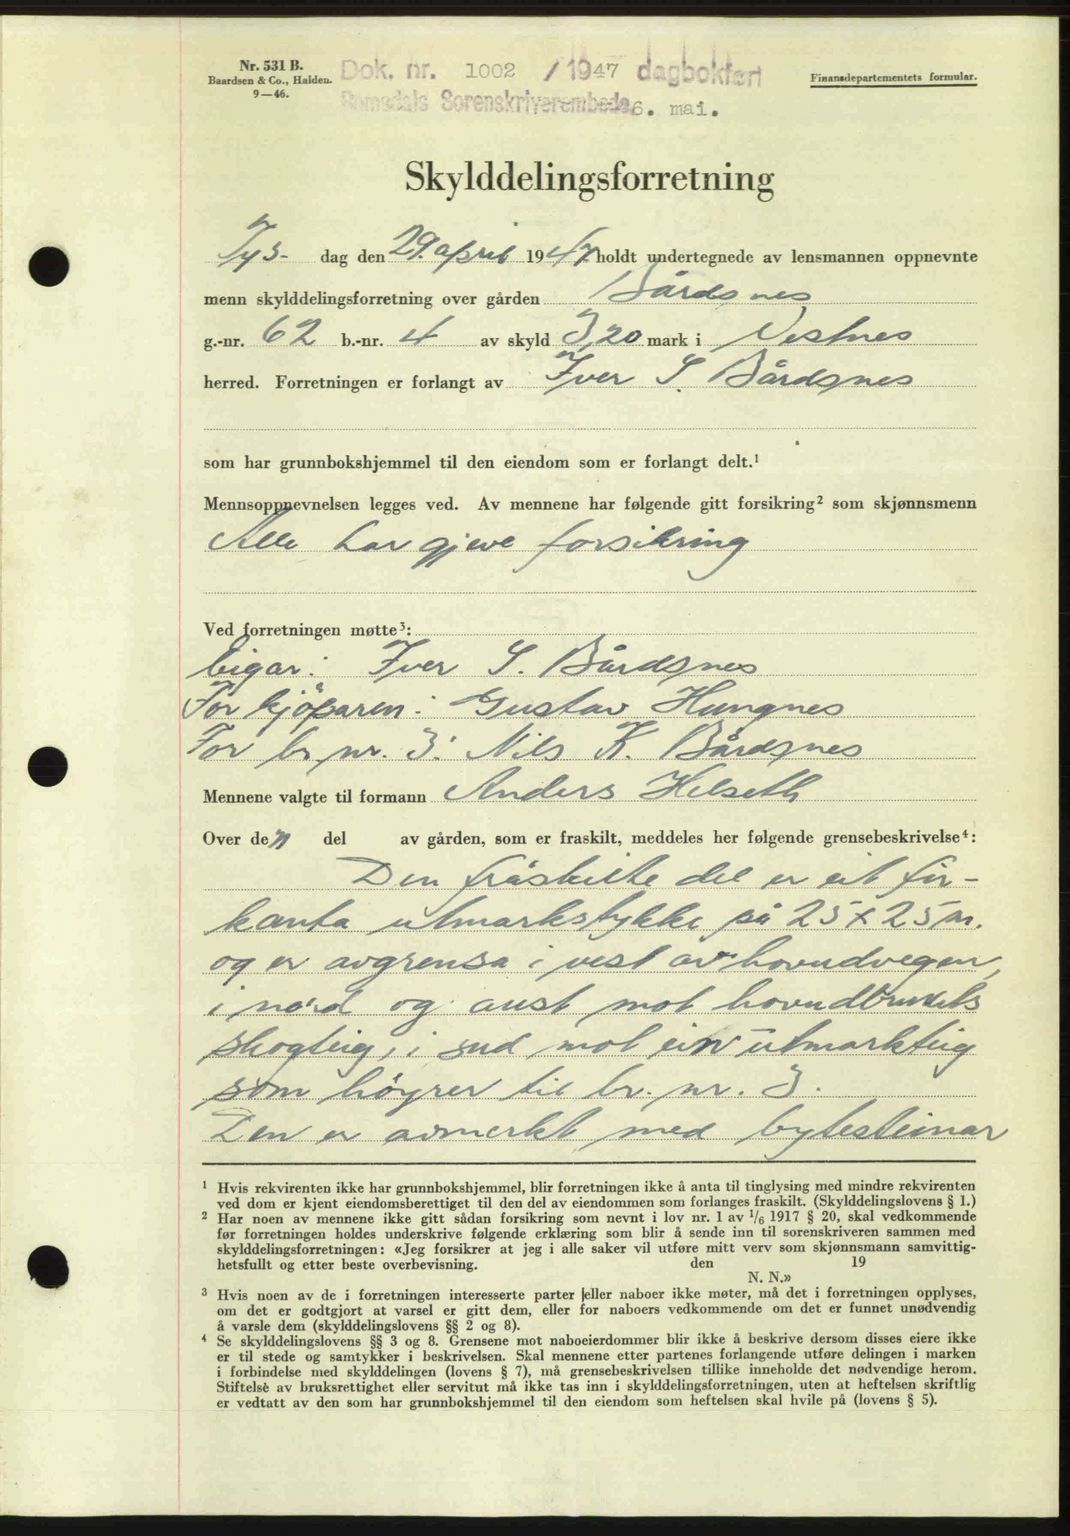 Nr. 531 B.
Baardsen & Co., Halden.
9—46.
Dok. nr. 1002 / 1947 dagbokført
Romsdals Sorenskriverembede 6. mai.
Finansdepartementets formular.
Skylddelingsforretning
Tys- dag den 29. april 1947 holdt undertegnede av lensmannen oppnevnte
menn skylddelingsforretning over gården Bårdsnes
g.-nr. 62 b.-nr. 4 av skyld 3,20 mark i Vestnes
herred. Forretningen er forlangt av Iver S. Bårdsnes
som har grunnbokshjemmel til den eiendom som er forlangt delt.¹
Mennsoppnevnelsen legges ved. Av mennene har følgende gitt forsikring² som skjønnsmenn
Alle har gjeve forsikring
Ved forretningen møtte³:
Eigar: Iver S. Bårdsnes
For kjöparen: Gustav Hungnes
For br. nr. 3: Nils K. Bårdsnes
Mennene valgte til formann Anders Helseth
Over den del av gården, som er fraskilt, meddeles her følgende grensebeskrivelse⁴:
Den fråskilte del er eit fir-
kanta utmarkstykke på 25 x 25 m.
og er avgrensa i vest av hovudvegen,
i nord og aust mot hovudbrukets
skogteig, i sud mot ein utmarkteig
som höyrer til br. nr. 3.
Den er avmerkt med bytesteinar
¹ Hvis rekvirenten ikke har grunnbokshjemmel, blir forretningen ikke å anta til tinglysing med mindre rekvirenten
ved dom er kjent eiendomsberettiget til den del av eiendommen som forlanges fraskilt. (Skylddelingslovens § 1.)
² Har noen av mennene ikke gitt sådan forsikring som nevnt i lov nr. 1 av 1/6 1917 § 20, skal vedkommende
før forretningen holdes underskrive følgende erklæring som blir å sende inn til sorenskriveren sammen med
skylddelingsforretningen: «Jeg forsikrer at jeg i alle saker vil utføre mitt verv som skjønnsmann samvittig-
hetsfullt og etter beste overbevisning. den 19
N. N.»
³ Hvis noen av de i forretningen interesserte parter eller naboer ikke møter, må det i forretningen opplyses,
om det er godtgjort at varsel er gitt dem, eller for naboers vedkommende om det er funnet unødvendig
å varsle dem (skylddelingslovens §§ 2 og 8).
⁴ Se skylddelingslovens §§ 3 og 8. Grensene mot naboeierdommer blir ikke å beskrive dersom disses eiere ikke
er til stede og samtykker i beskrivelsen. Skal mennene etter partenes forlangende utføre delingen i marken
i forbindelse med skylddelingen (lovens § 7), må grensebeskrivelsen tillike inneholde det nødvendige herom.
Stiftelse av bruksrettighet eller servitut må ikke tas inn i skylddelingsforretningen, uten at heftelsen skriftlig
er vedtatt av den som har grunnbokshjemmel til den eiendom som heftelsen skal hvile på (lovens § 5).